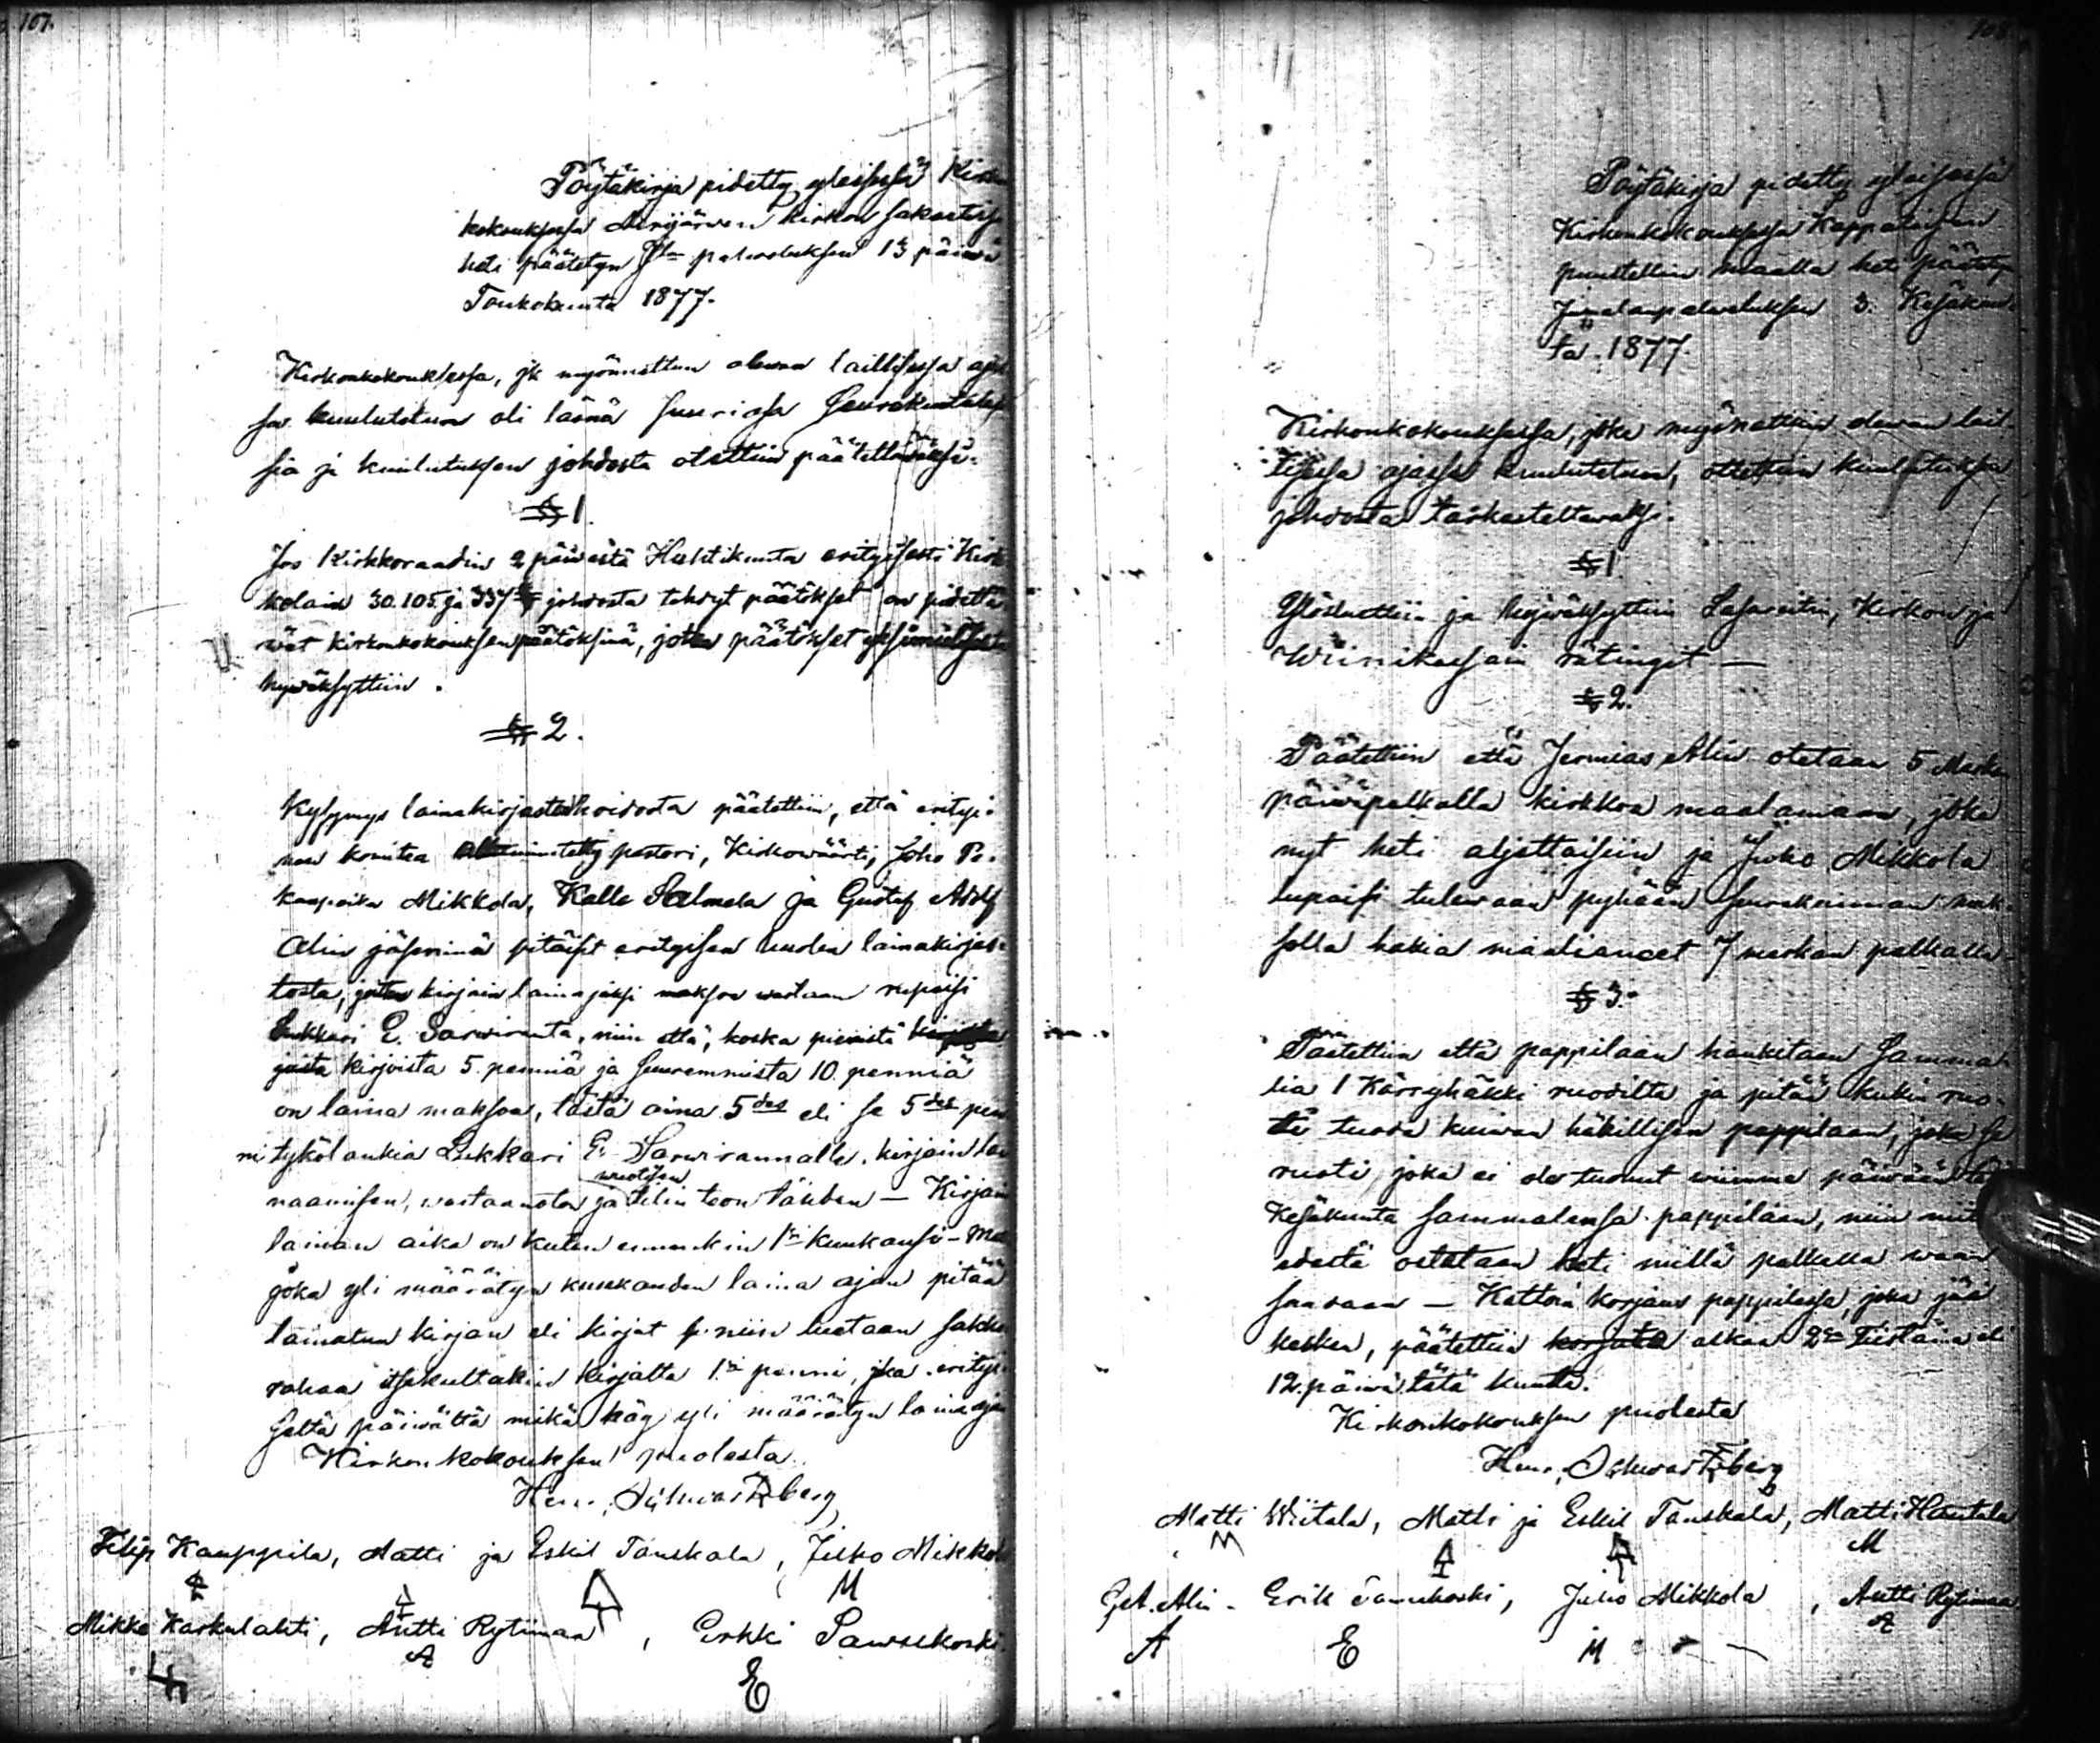 107.
Pöytäkirja pidetty yleisessä Kirkon
kokouksessa Merijärwen kirkon sakastissa
heti päätetyn Jlan palweluksen 13 päiwä
Toukokuuta 1877.
Kirkonkokouksessa, jk myönnettun olewan laillisessa ajas
sa kuulutetun oli läsnä suuri osa Seurakuntalai
sia ja kuulutuksen johdosta otettiin päätettäwäksi:
§ 1.
Jos Kirkkoraadin 2 päiwästä Huhtikuuta erityisesti Kirk
kolain 30. 105. ja 337 § johdosta tehdyt päätökset on pidettä
wät kirkonkokouksen päätöksinä, jotka päätökset yksimielisesti
hywäksyttiin.
§ 2.
Kysymys lainakirjastonhoidosta päätettiin, että erityi-
nen komitea nimitetty pastori, Kirkowäärti, Joho Pe-
kanpoika Mikkola, Kalle Salmela ja Gustaf Adolf
Alin jäseninä pitäisit erityisen huolen lainakirjas-
tosta, jotka kirjain lainajiksi maksoa wastaan rupeisi
Lukkari E. Sarwiranta, niin että, koska pienistä
kirjoista 5. penniä ja suuremmista 10. penniä
on laina maksoa, tästä aina 5des eli se 5des pen
ni tykölankia Lukkari E. Sarwirannalle, kirjain lai
naamisen, wastaanoton ja wuotisen tilin teon tähden — Kirjain
lainan aika on kuten ennenkin 1si kuukausi –
joka yli määrätyn kuukauden laina ajan pitää
lainatun kirjan eli kirjat se niin luetaan sakko
rahaa itsekultakin kirjalta 1si penni, jka erityi-
seltä päiwältä mikä käy yli määrätyn laina ajan
Kirkonkokouksen puolesta
Henr. Schwartzberg
Filip Kauppila, Matti ja Eskil Tanskala, Juho Mikkola
M
Mikko Karkulahti, Antti Rytiman, Erkki Sawwkoski
A E
108
Pöytäkirja pidetty yleisessä
Kirkonkokouksessa Kappalaisen
puustellin maalla heti päätetyn
Jumalanpalweluksen 3. Kesäkuu-
ta. 1877.
Kirkonkokouksessa, joka myönettiin olewan lail-
lisessa ajassa kuulutetun, otettiin kuulutuksen
johdosta tarkasteltawaksi.
§ 1
Ylösluettiin ja hywäksyttiin Lasareitin, Kirkon ja
Wiinikassain rätingit —
§ 2.
Päätettiin että Jermias Alin otetaan 5 Markan
päiwäpalkalla kirkkoa maalamaan, joka
nyt heti aljettaisiin ja Juho Mikkola
lupaisi tulewaan pyhään seurakunnan mak-
solla hakia maaliaineet 7 markan palkalla
§ 3.
Päätettiin että pappilaan hankitaan Samma-
lia 1 Kärryhäkki ruodilta ja pitää kukin ruo-
ti tuoda kuiwan häkillisen pappilaan, joka se
ruoti joka ei ole tuonut wiimme päiwään tätä
Kesäkuuta sammalensa pappilaan, niin niitä
edestä ostetaan heti millä palkalla waan
saadaan — Katton korjaus pappilassa, joka jää
kesken, päätettiin alkaa 2na Tiistaina eli
12. päiwä tätä kuuta.
Kirkonkokouksen puolesta
Henr. Schwartzberg
Matti Wiitala, Matti ja Eskil Tanskala, Matti Hautala
M M
G.A. Alin - Erik Sauukoski, Juho Mikkola, Antti Rytiman
A E M A